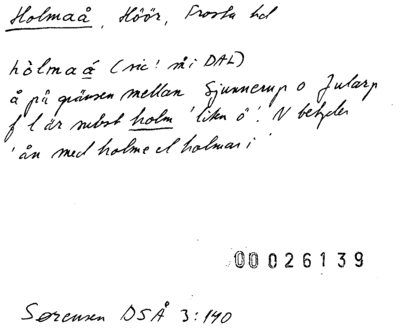 Holmaå, Höör, Frosta hd
hòlmaá (sic! så i DAL)
å på gränsen mellan Sjunnerup o Jularp
f l är subst holm 'liten ö'. N betyder
'ån med holme el holmar i'
00026139
Sørensen DSÅ 3:140